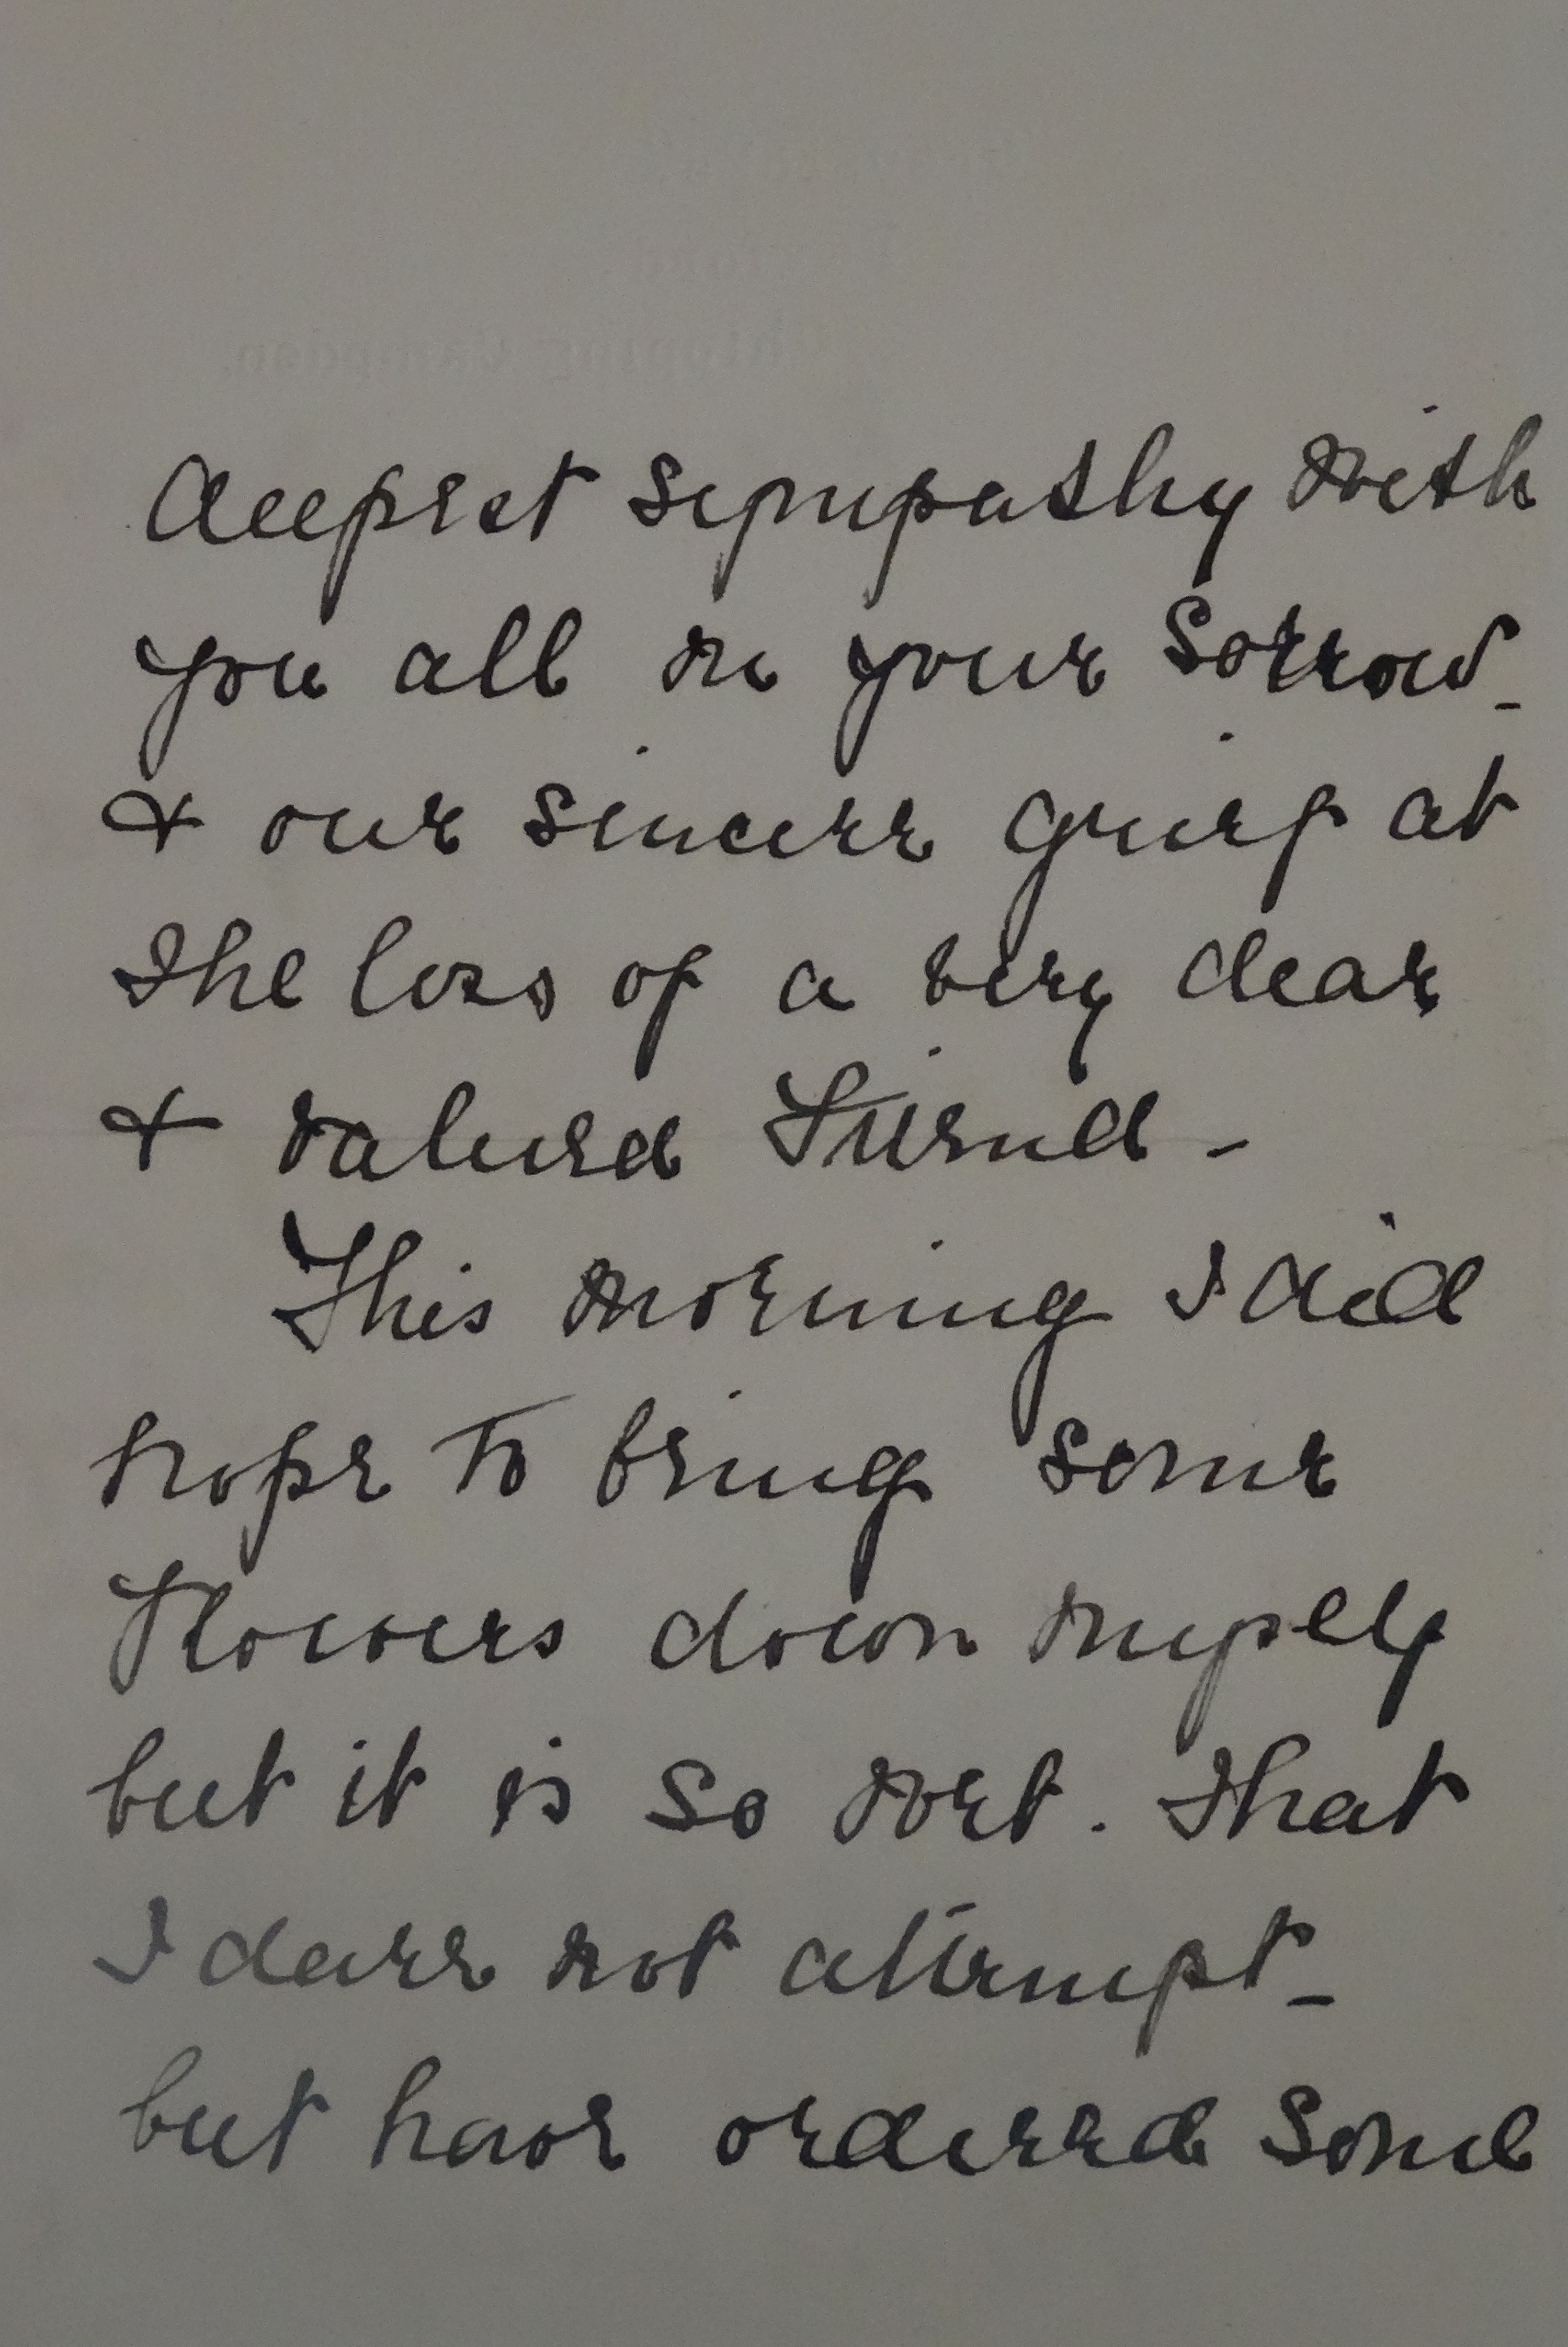 deepest sympathy with
you all in your sorrow_
& our sincere grief at
the loss of a very dear
& valued Friend -
This morning I did
hope to bring some
Flowers down myself
but it is so wet. that
I dare not attempt_
but have ordered some